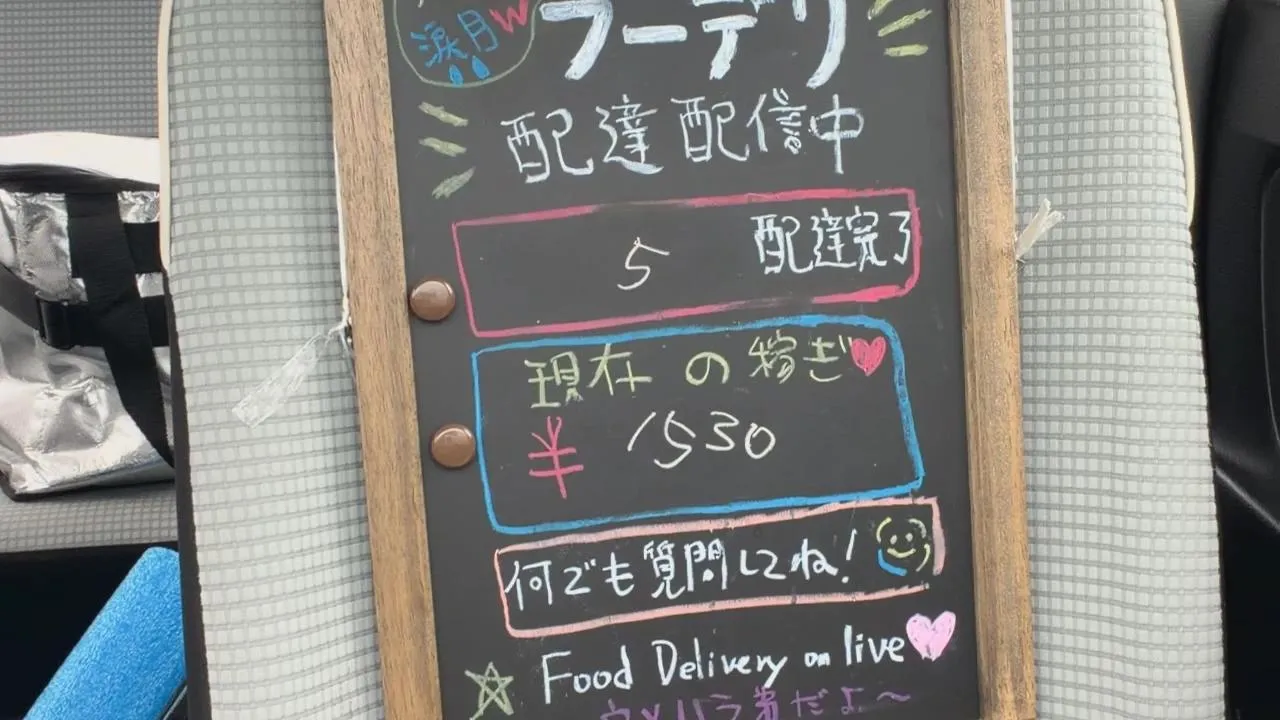 涙月w
フーデリ
配達配信中
5 配達完了
現在の稼ぎ
¥ 1530
何でも質問してね!
Food Delivery on live